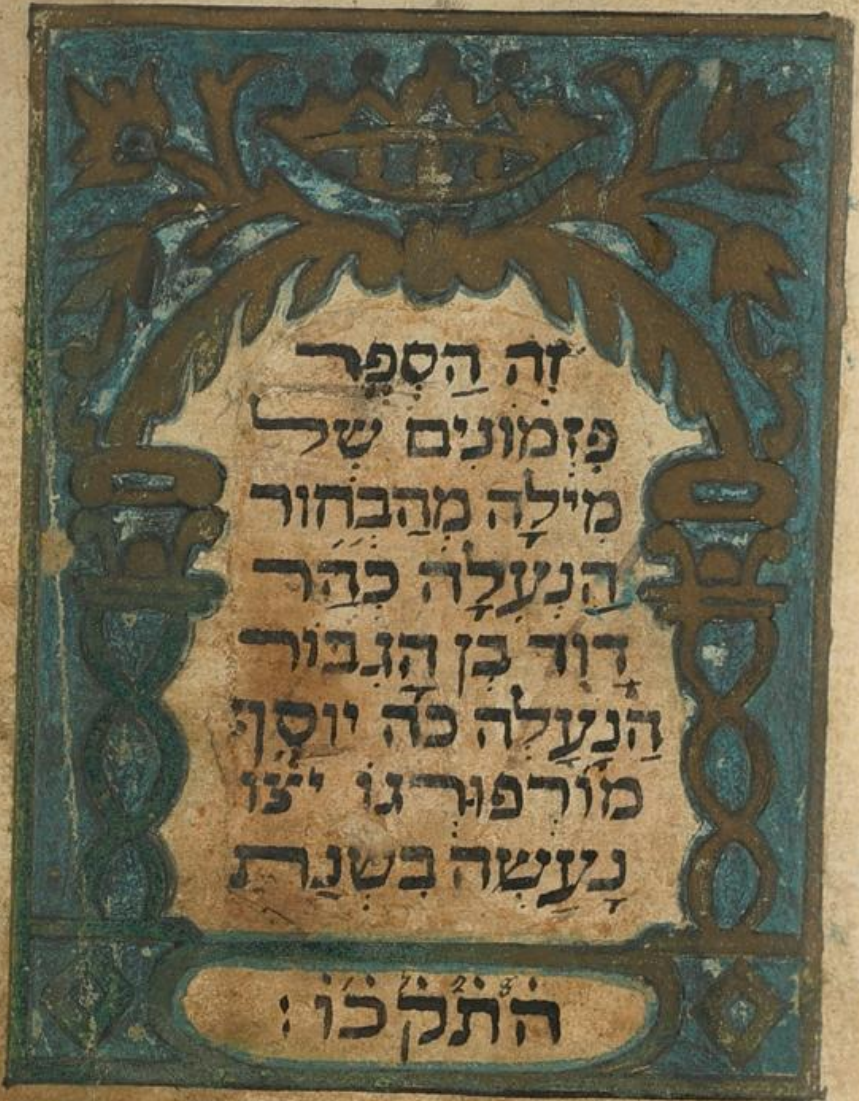 זֶה הַסֵפֶר
פִּזְמוֹנִים שֶׁל
מִילָה מֵהַבָּחוּר
הַנַעֲלֶה כְּהַר
דָוִד בֶּן הַגִבּוֹר
הַנַעֲלֶה כה יוֹסֵף
מוֹרְפּוּרְגוֹ יצו
נַעֲשָׂה בִּשְׁנַת
התקכו: